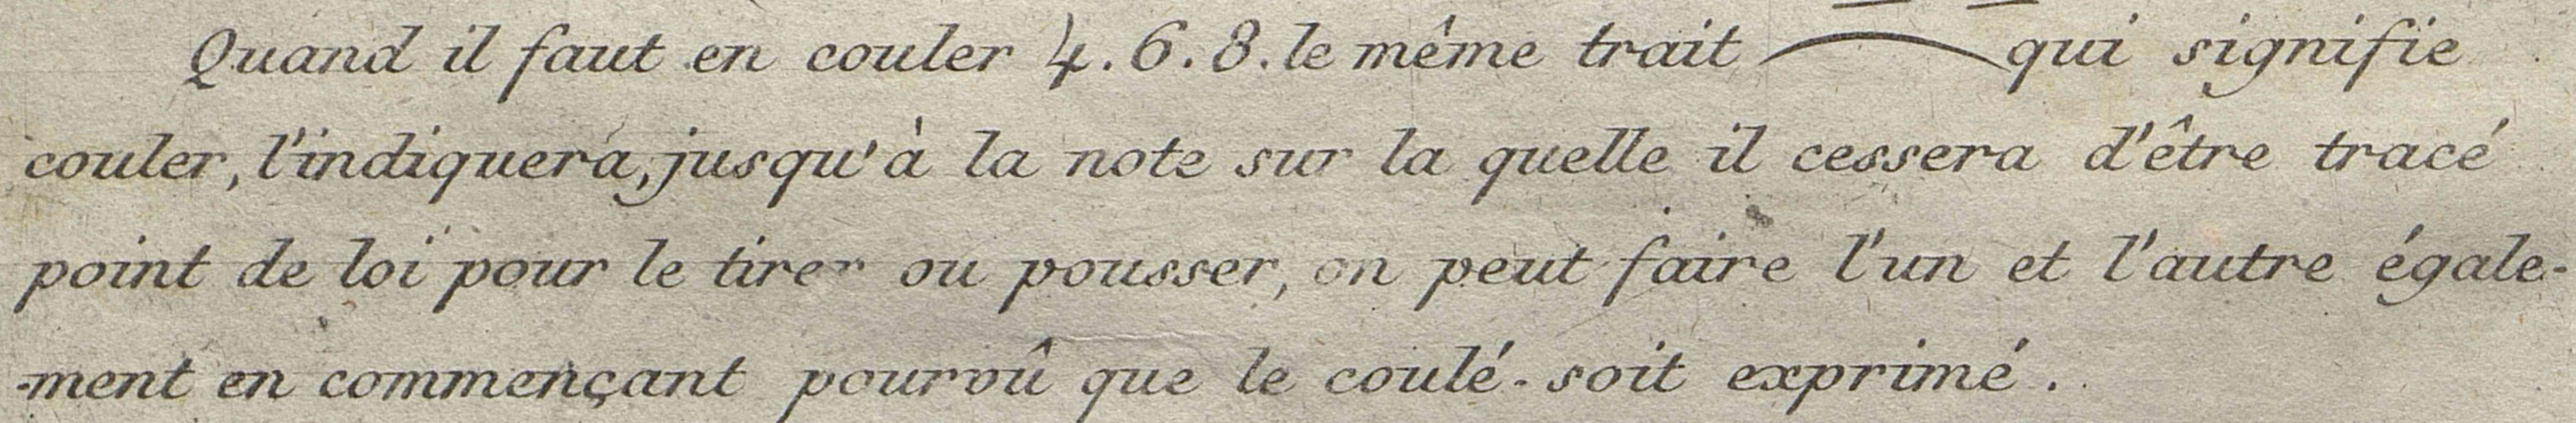 Quand il faut en couler 4. 6. 8. le même trait ⁀ qui signifie
couler, l'indiquera, jusqu'à la note sur la quelle il cessera d'être tracé
point de loi pour le tirer ou pousser, on peut faire l'un et l'autre égale-
-ment en commençant pourvû que le coulé soit exprimé.